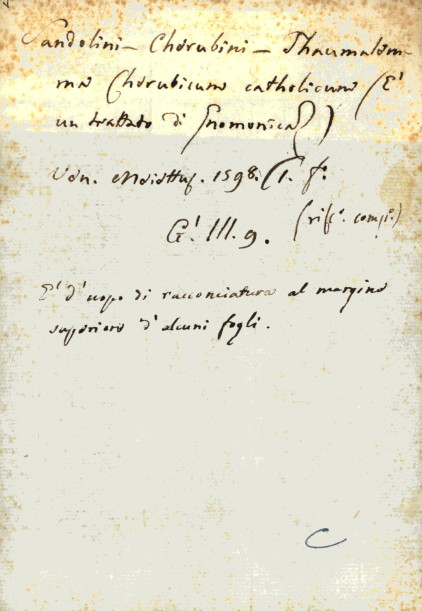 Sandolini - Cherubini - Thaumalem
ma Cherubicum catholicum (E'
un trattato di Gnomonica)
Ven. Meiettus. 1598. T. f.
G'. III. 9. (
E' d'uopo di racconciatura al margine
superiore d'alcuni fogli.
C